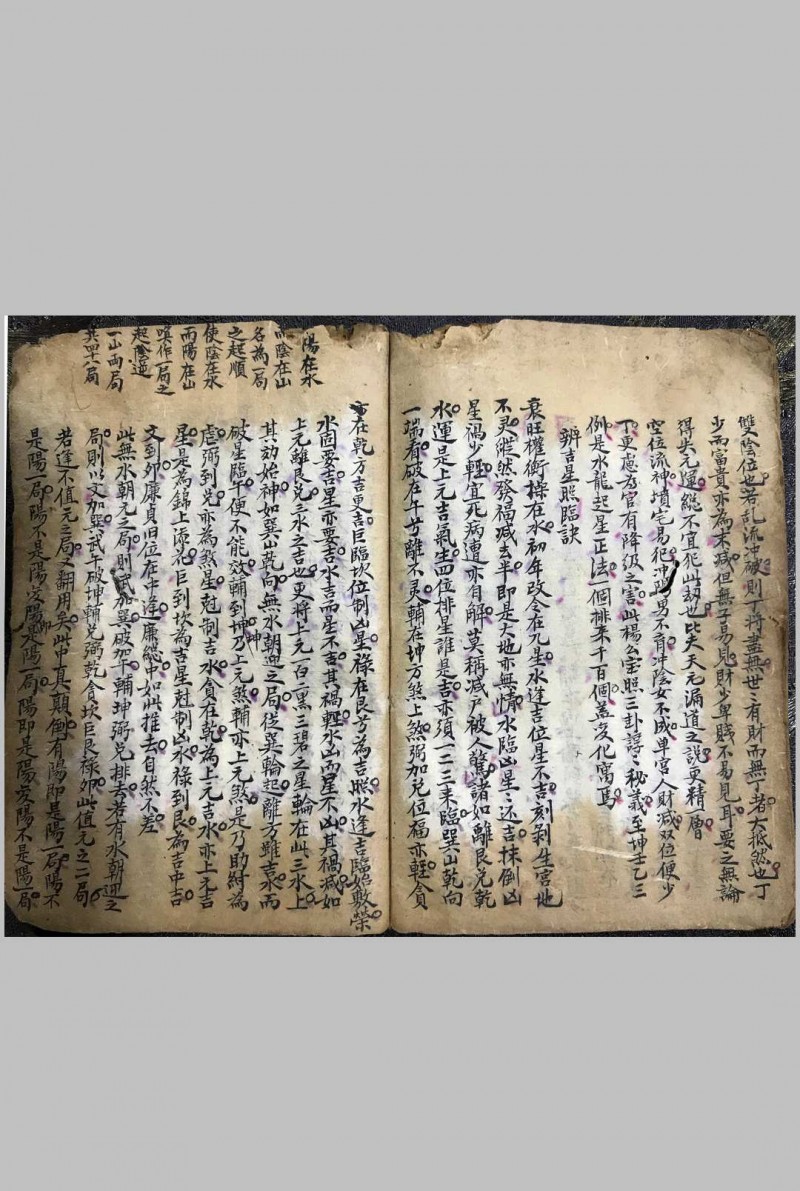 雙陰位也若乱流冲破則丁將盡無世〻有財而無丁者大抵然也丁
少而富貴亦為末减但無子易見財少卑賤不易見耳要之無論
得失元運総不宜犯此刼也比夫天元漏道之説更精一層
空位流神墳宅易犯冲陽男不育冲陰女不成单宮人財减双位便少
丁更慮為官有降級之害此楊公宝照三卦諄〻秘義至坤壬乙三
例是水龍起星正法一個排来千百個盖变化寓焉
辨吉星照臨訣
衰旺權衡操在水初年改令在九星水逢吉位星不吉刻剥生宮地
不灵縱然發福减去半即是大地亦無情水臨凶星〻还吉抹倒凶
星禍少輕宜死病遭亦自解莫稱减戸被人驚諸如離艮兑乾
水運是上元吉氣生四位排星誰是吉亦須一二三来臨巽山乾向
一端看破在午兮離不灵輔在坤方煞上煞弼加兑位福亦輕貪
重在乾方吉更吉巨臨坎位制凶星禄在艮兮為吉曜水逢吉臨始敷榮
水固要吉星亦要吉水吉而星不吉其禍輕水凶而星不凶其禍减如
上元離艮兑三水之吉也更将上元一白二黑三碧之星輪在此三水上
其効始神如巽山乾向無水朝迎之局從巽輪起離方雖吉水而
破星臨午便不能效輔到坤乃上元煞輔亦上元煞是乃助紂為
虐弼到兑亦為煞星尅制吉水貪在乾為上元吉水亦上元吉
星是為錦上添花巨到坎為吉星尅制凶水禄到艮為吉中吉
文到卯廉貞旧位在中逢廉総中如此推去自然不差
此無水朝元之局則武加巽破加午輔坤弼兑排去若有水朝迎之
局則以文加巽武午破坤輔兑弼乾貪坎巨艮禄卯此值元之二局
若逢不值元之局又翻用矣此中真顛倒有陽即是陽一局陽不
是陽一局陽不是陽变陽是陽一局陽即是陽变陽不是陽一局
陽在水
而陰在山
名為一局
之起順
使陰在水
而陽在山
喚作一局之
起陰逆
一山両局
共四十八局